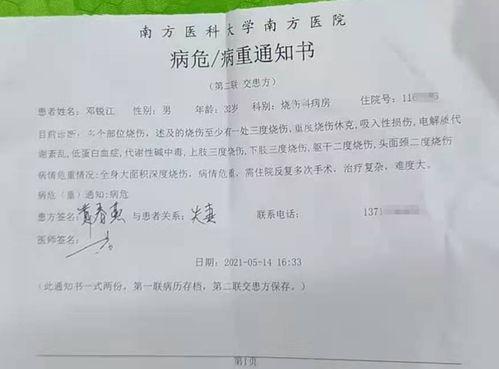 南方医科大学南方医院
病危/病重通知书
(第二联 交患方)
患者姓名: 邓锐江 性别: 男 年龄: 38岁 科别: 烧伤科病房 住院号: 116
目前诊断: 多个部位烧伤, 述及的烧伤至少有一处三度烧伤, 重度烧伤休克, 吸入性损伤, 电解质代
谢紊乱, 低蛋白血症, 代谢性碱中毒, 上肢三度烧伤, 下肢三度烧伤, 躯干二度烧伤, 头面颈二度烧伤
病情危重情况: 全身大面积深度烧伤, 病情危重, 需住院反复多次手术, 治疗复杂, 难度大。
病危(重)通知: 病危
患方签名: 与患者关系: 夫妻 联系电话: 137
医师签名:
日期: 2021-05-14 16:33
(此通知书一式两份, 第一联病历存档, 第二联交患方保存。)
第1页